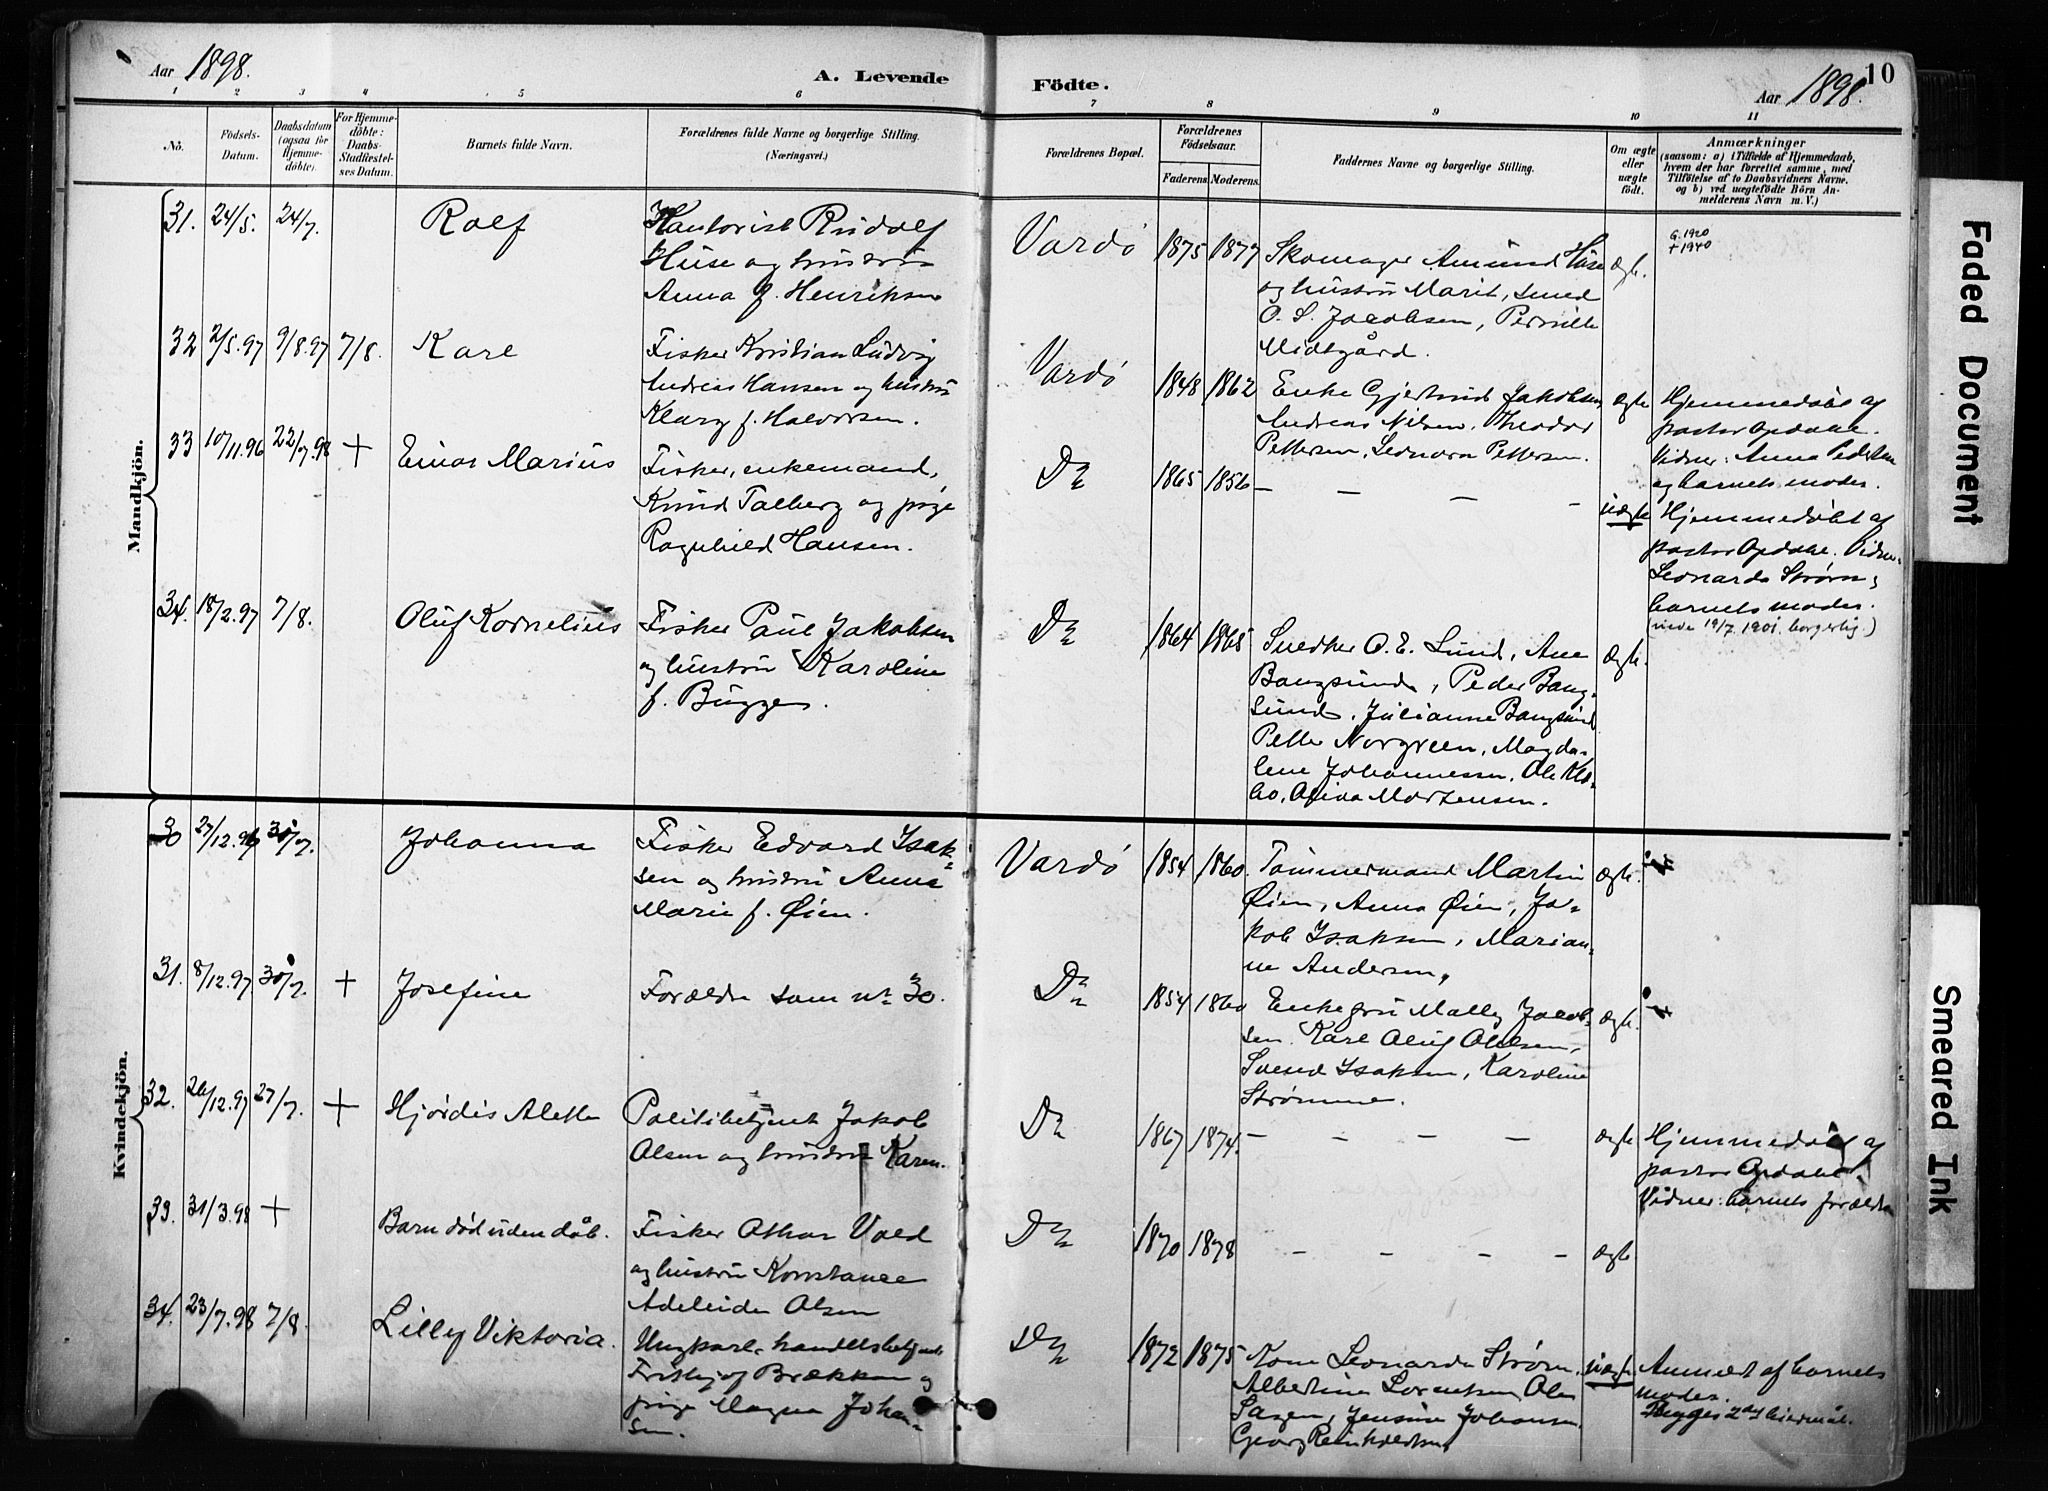 Aar 1898.
A. Levende
Födte.
Aar 1898.
10
1 2 3 4 5 6 7 8 9 10 11
No.
Födsels-
Datum.
Daabsdatum
(ogsaa for
Hjemme-
döbte).
For Hjemme-
döbte:
Daabs-
Stadfæstel-
ses Datum.
Barnets fulde Navn.
Forældrenes fulde Navne og borgerlige Stilling.
(Næringsvei.)
Forældrenes Bopæl.
Forældrenes
Födselsaar.
Faderens.
Moderens.
Faddernes Navne og borgerlige Stilling.
Om ægte
eller
uægte
födt.
Anmærkninger
(saasom: a) i Tilfælde af Hjemmedaab,
hvem der har forrettet samme, med
Tilföielse af to Daabsvidners Navne.
og b) ved uægtefödte Börn An-
melderens Navn m. V.)
Mandkjön.
31. 24/5. 24/7. Rolf
Kontorist Rudolf
Huse og hustru
Anna f. Henriksen
Vardö 1875 1877
Skomager Amund Huse
og hustru Marit, smed
O. S. Jacobsen, Pernille
Midtgård.
ægte.
G. 1920
+ 1940
32 2/5.97 9/8.97 7/8. Karl
Fisker Kristian Ludvig
Andreas Hansen og hustru
Klary f. Halvorsen.
Vardö 1848 1862
Enke Gjertrud Jakobsen,
Andreas Nilsen, Theodor
Pettersen, Leonora Pettersen.
ægte
Hjemmedøbt af
pastor Opdahl.
Vidner: Anna Pedersen
og barnets moder.
33 10/11.96 22/7.98 + Einar Marius
Fisker, enkemand,
Knud Talberg og pige
Ragnhild Hansen.
Do 1865 1856 – – – –
uægte
Hjemmedøbt af
pastor Opdahl. Vidner:
Leonarda Strøm,
barnets moder.
(viede 19/7 1901. borgerlig.)
34. 18/2.97 7/8. Oluf Kornelius
Fisker Paul Jakobsen
og hustru Karoline
f. Bugge.
Do 1864 1865
Snedker O. E. Lund, Ane
Bangsund, Peder Bang-
sund, Julianne Bangsund
Petter Norgreen, Magda-
lene Johannessen, Ole Klø-
bo, Oliva Mortensen.
ægte.
Kvindekjön.
30 27/12.96 30/7. Johanna
Fisker Edvard Isak-
sen og hustru Anna
Marie f. Øien.
Vardö 1854 1860.
Tømmermand Martin
Øien, Anna Øien, Ja-
kob Isaksen, Marian-
ne Andersen.
ægte.
31. 8/12.97 30/7. + Josefine
Forældre som nr 30.
Do 1854 1860
Enkefru Mally Jacob-
sen. Karl Oluf Ohlsen,
Svend Isaksen, Karoline
Strømme.
ægte.
32. 26/12.97 27/7. + Hjørdis Alette
Politibetjent Jakob
Olsen og hustru Karen.
Do 1867 1874. – – – –
ægte
Hjemmedøbt af
pastor Opdahl.
Vidner: barnets forældre
33. 31/3.98 + Barn død uden dåb.
Fisker Othar Vold
og hustru Konstance
Adeleide Olsen
Do 1870 1878 – – – –
ægte
34. 23/7.98 7/8. Lilly Viktoria.
Ungkarl, handelsbetjent
Frithjof Brækken og
pige Magna Johan-
sen.
Do 1872 1875
Kone Leonarda Strøm,
Albertine Lorentsen, Ole
Sagen, Jensine Johansen.
Georg Reinholdtsen
uægte
Anmeldt af barnets
moder.
Begges 2det leiermål.
Faded Document
Smeared Ink